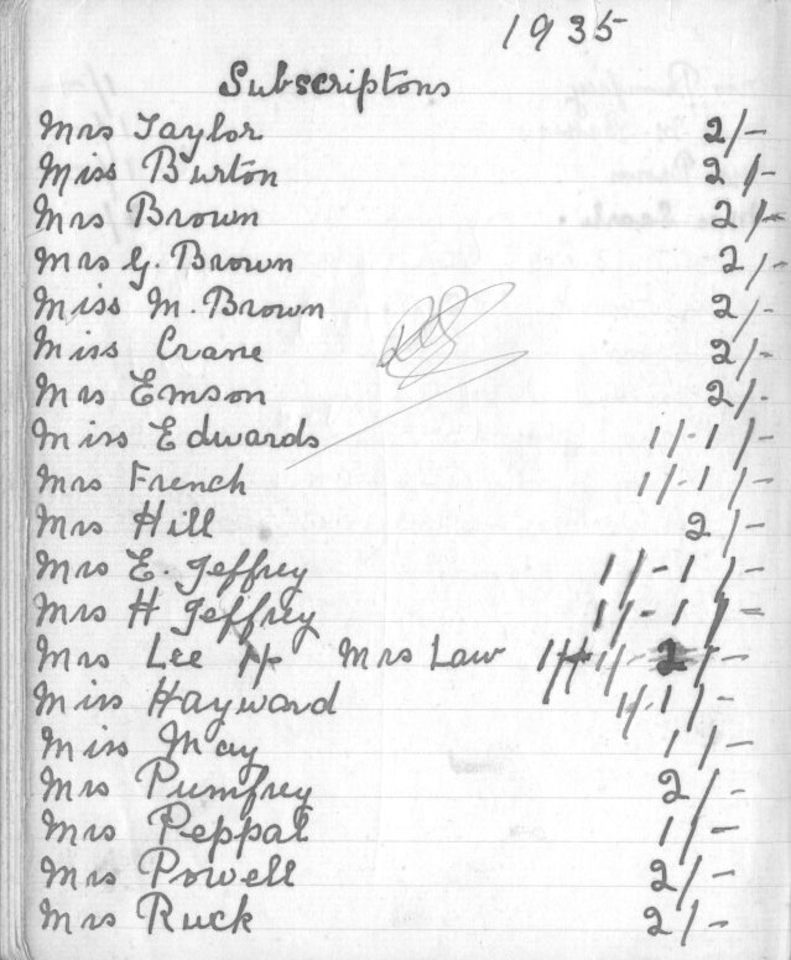 1935
Subscriptons
Mrs Taylor 2/-
Miss Burton 2/-
Mrs Brown 2/-
Mrs G. Brown 2/-
Miss M. Brown 2/-
Miss Crane 2/-
Mrs Emson 2/-
Miss Edwards 1/- 1/-
Mrs French 1/- 1/-
Mrs Hill 2/-
Mrs E. Jeffrey 1/- 1/-
Mrs H Jeffrey 1/- 1/-
Mrs Lee 1/- Mrs Law 1/- 1/- 2/-
Miss Hayward 1/- 1/-
Miss May 1/-
Mrs Pumfrey 2/-
Mrs Peppal 1/-
Mrs Powell 2/-
Mrs Ruck 2/-